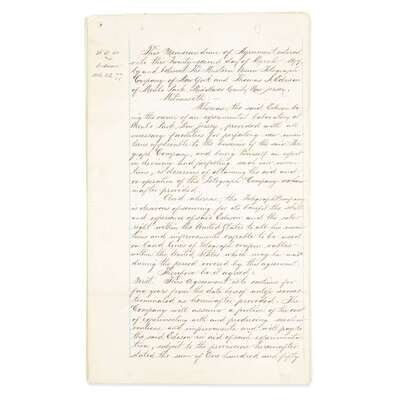 This Memorandum of Agreement entered
into this Twenty-second day of March 1877,
by and between The Western Union Telegraph
Company of New York and Thomas A. Edison
of Menlo Park, Middlesex County New Jersey,
Witnesseth:-
Whereas, the said Edison being
the owner of an experimental laboratory at
Menlo Park, New Jersey, provided with all
necessary facilities for perfecting new inven-
tions applicable to the business of the said Tele-
graph Company, and being himself an expert
in devising and perfecting such new inven-
tions, is desirous of obtaining the aid and
co-operation of the Telegraph Company as herein-
after provided.
And whereas, the Telegraph Company
is desirous of securing for its benefit the skill
and experience of said Edison and the sole
right within the United States to all his inven-
tions and improvements capable to be used
on land lines of telegraph or upon cables
within the United States which may be made
during the period covered by this agreement,
Therefore be it agreed:
First. This Agreement shall continue for
five years from the date hereof unless sooner
terminated as hereinafter provided. The
Company will assume a portion of the cost
of experimenting with and producing such in-
ventions and improvements and will pay to
the said Edison in aid of said experimenta-
tion, subject to the provisions hereinafter
stated the sum of One hundred and fifty